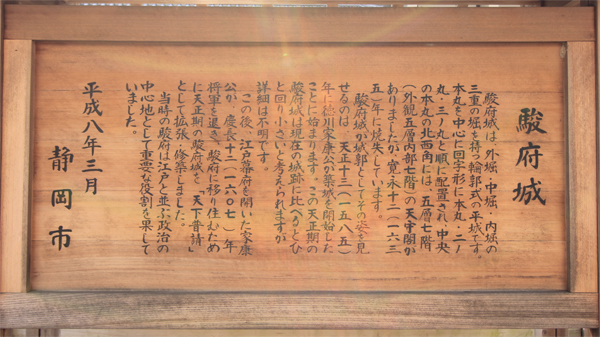 駿府城
駿府城は、外堀・中堀・内堀の
三重の堀を持つ輪郭式の平城です。
本丸を中心に回字形に本丸・二ノ
丸・三ノ丸と順に配置され、中央
の本丸の北西角には、五層七階
（外観五層内部七階）の天守閣が
ありましたが、寛永十二（一六三
五）年に焼失しています。
駿府城が城郭としてその姿を見
せるのは、天正十三（一五八五）
年に徳川家康公が築城を開始した
ことに始まります。この天正期の
駿府城は現在の城跡に比べるとひ
と回り小さいと考えられますが
詳細は不明です。
この後、江戸幕府を開いた家康
公が、慶長十二（一六〇七）年
将軍を退き、駿府に移り住むため
に天正期の駿府城を、「天下普請」
として拡張・修築しました。
当時の駿府は江戸と並ぶ政治の
中心地として重要な役割を果して
いました。
平成八年三月
静岡市